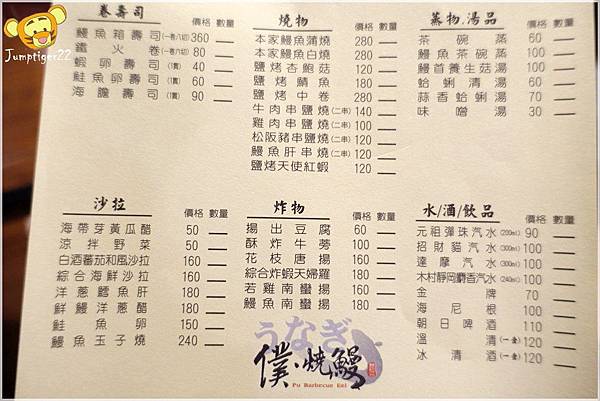 Jumptiger22
卷壽司 價格 數量
鰻魚箱壽司(一卷八切) 360
鐵火卷(一卷六切) 80
蝦卵壽司(1貫) 40
鮭魚卵壽司(1貫) 60
海膽壽司(1貫) 90
燒物 價格 數量
本家鰻魚蒲燒 280
本家鰻魚白燒 280
鹽烤杏鮑菇 120
鹽烤鯖魚 100
鹽烤中卷 280
牛肉串鹽燒(二串) 140
雞肉串鹽燒(二串) 100
松阪豬串鹽燒(二串) 120
鰻魚肝串燒(二串) 120
鹽烤天使紅蝦 120
蒸物.湯品 價格 數量
茶碗蒸 60
鰻魚茶碗蒸 100
鰻首養生菇湯 100
蛤蜊清湯 60
蒜香蛤蜊湯 70
味噌湯 30
沙拉 價格 數量
海帶芽黃瓜醋 50
涼拌野菜 50
白酒蕃茄和風沙拉 160
綜合海鮮沙拉 160
洋蔥鱈魚肝 180
鮮鰻洋蔥醋 180
鮭魚卵 150
鰻魚玉子燒 240
炸物 價格 數量
揚出豆腐 60
酥炸牛蒡 100
花枝唐揚 160
綜合炸蝦天婦羅 180
若雞南蠻揚 160
鰻魚南蠻揚 180
水/酒/飲品 價格 數量
元祖彈珠汽水(200ml) 90
招財貓汽水(300ml) 100
達摩汽水(300ml) 100
木村靜岡麝香汽水(240ml) 100
金牌 70
海尼根 100
朝日啤酒 110
溫清(一壺) 120
冰清酒(一壺) 120
うなぎ
僕燒鰻
Pu Barbecue Eel